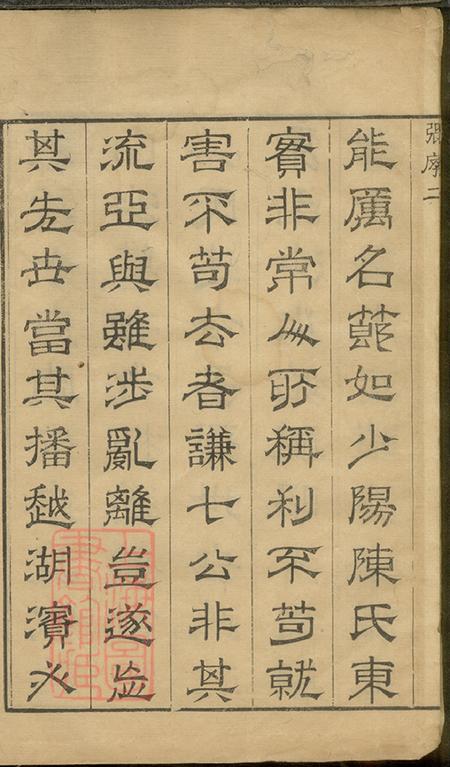 張序二
能厲名節如少陽陳氏東
實非常人所稱利不苟就
害不苟去者謙七公非其
流亞與雖涉亂離豈遂忘
其先世當其播越湖濱必